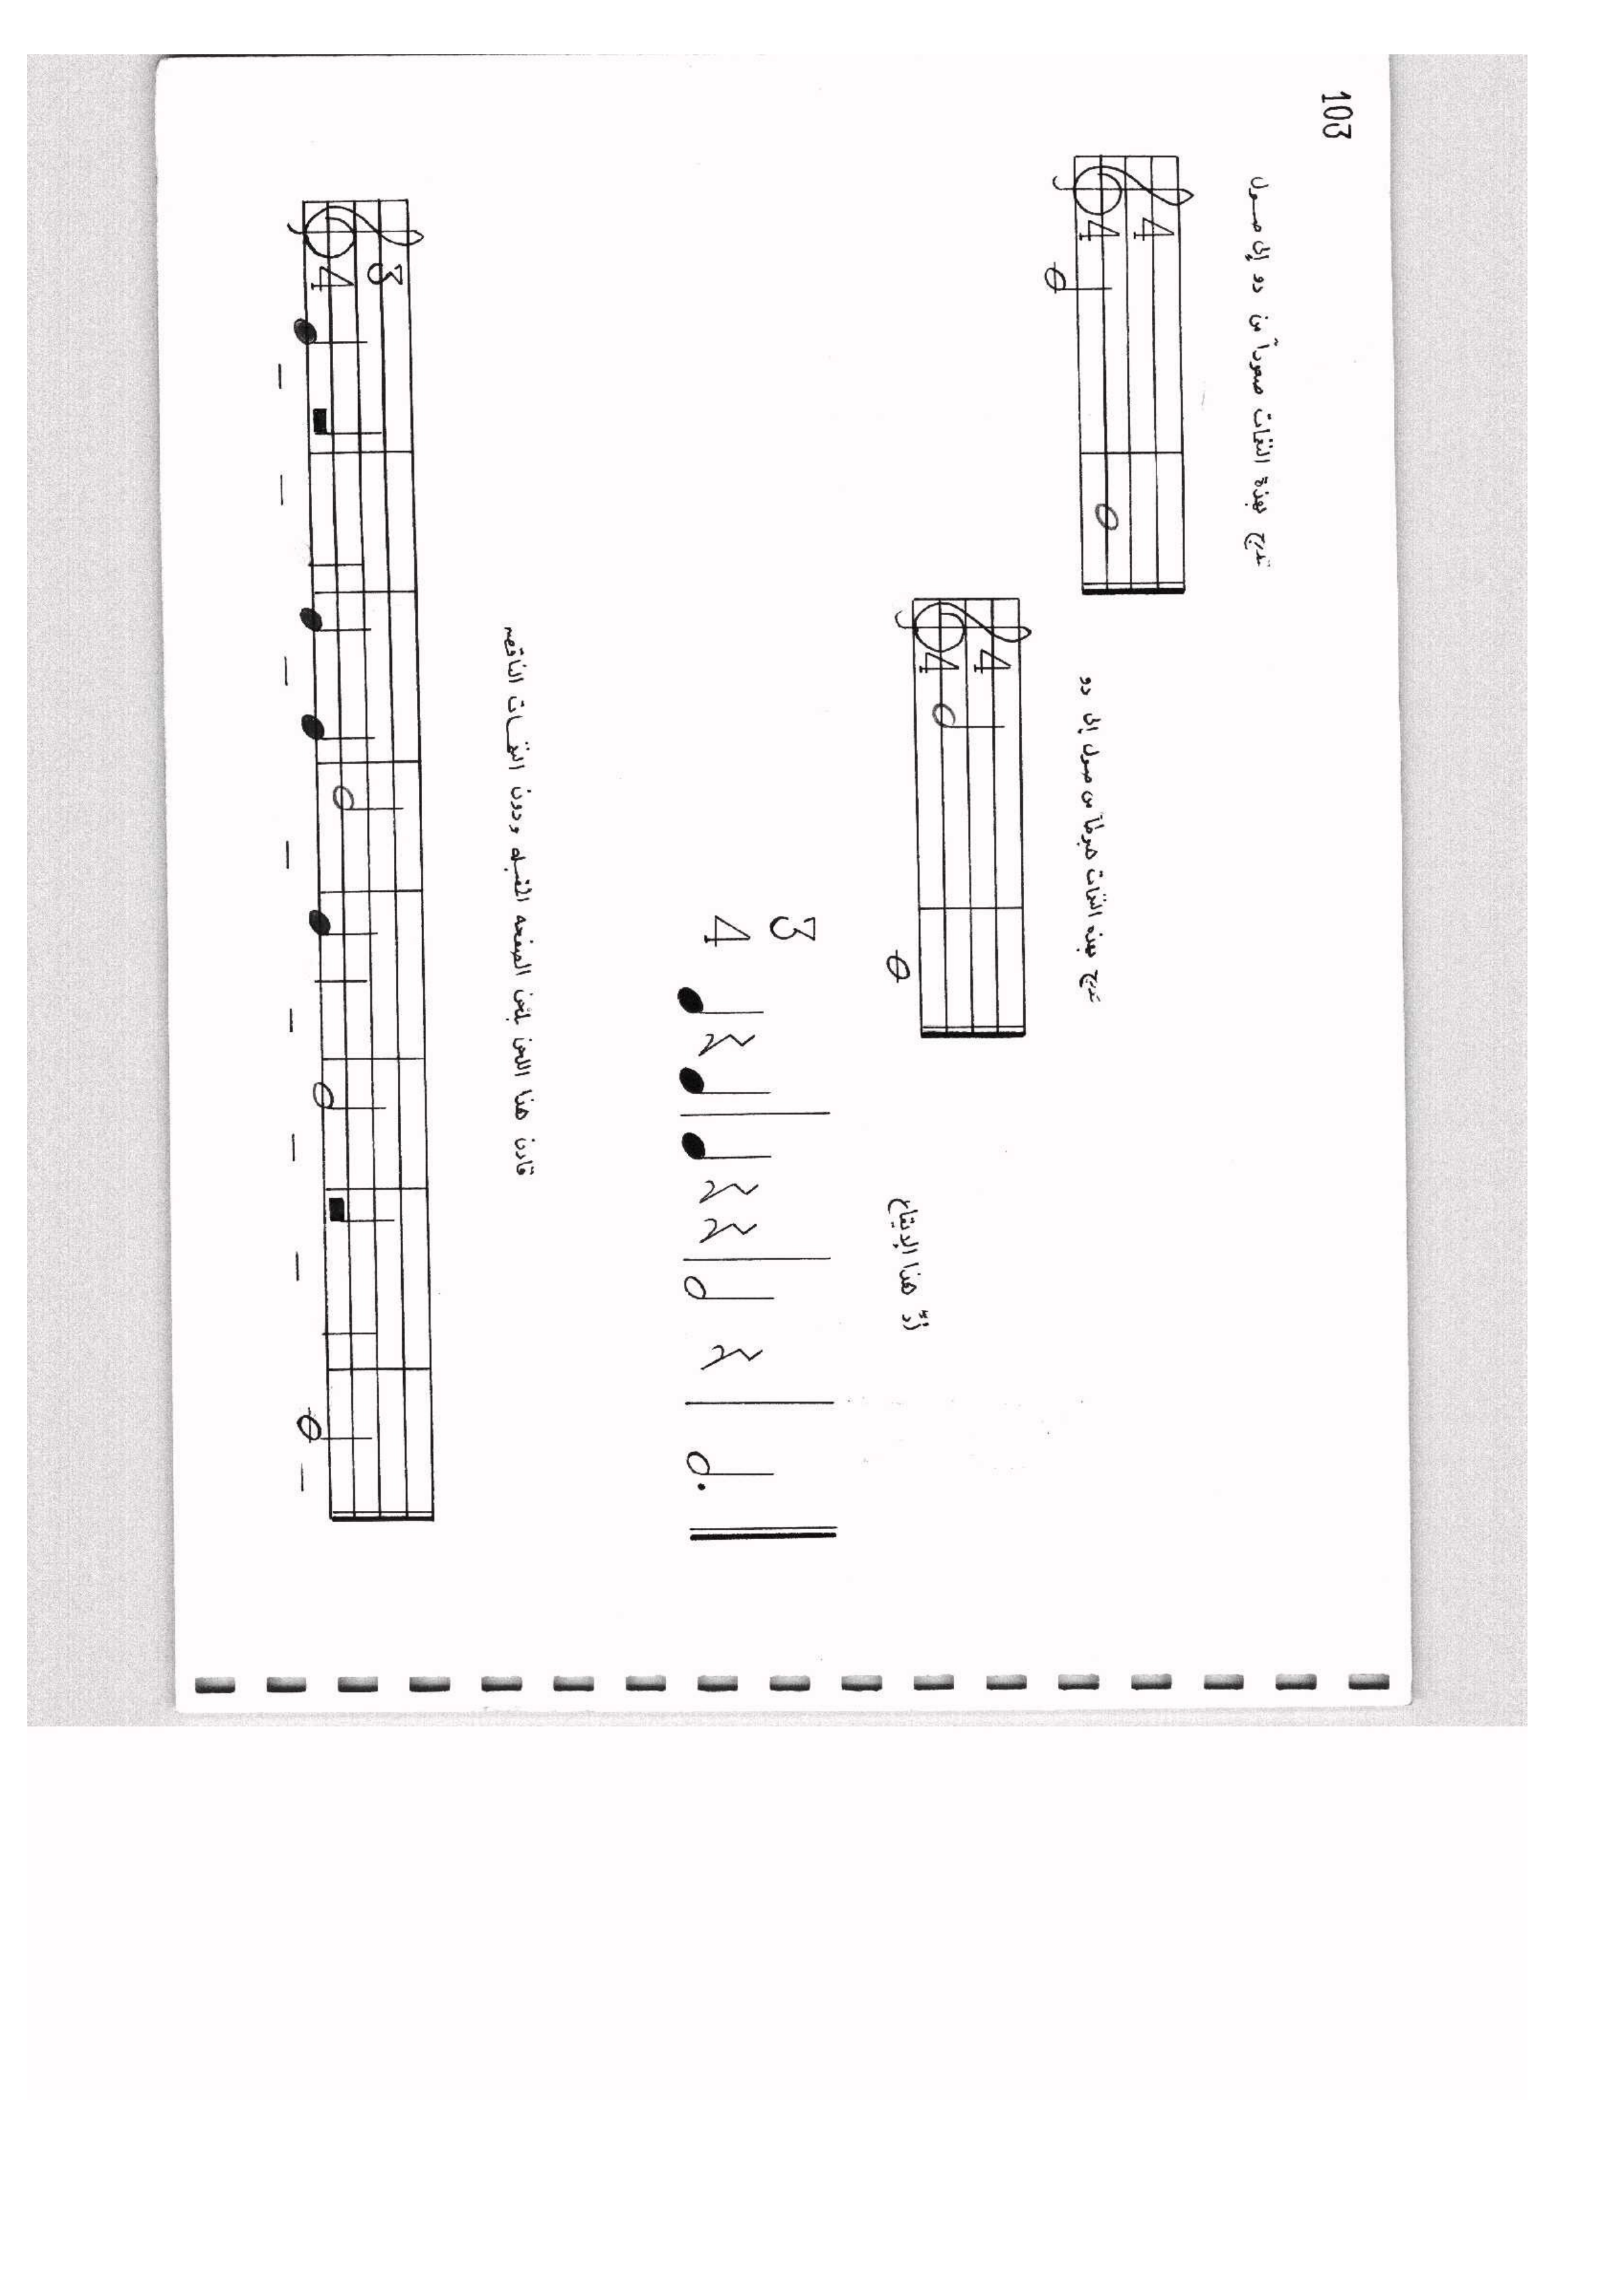 103
تدرج بهذة النغات صعوداً من دو إلى صول
4
4
تدرج بهذه النغات هبوطاً من صول إلى دو
4
4
أدّ هذا الإيقاع
3
4
قارن هذا اللحن بلحن الصفحه المقبله ودون النغمات الناقصه
3
4